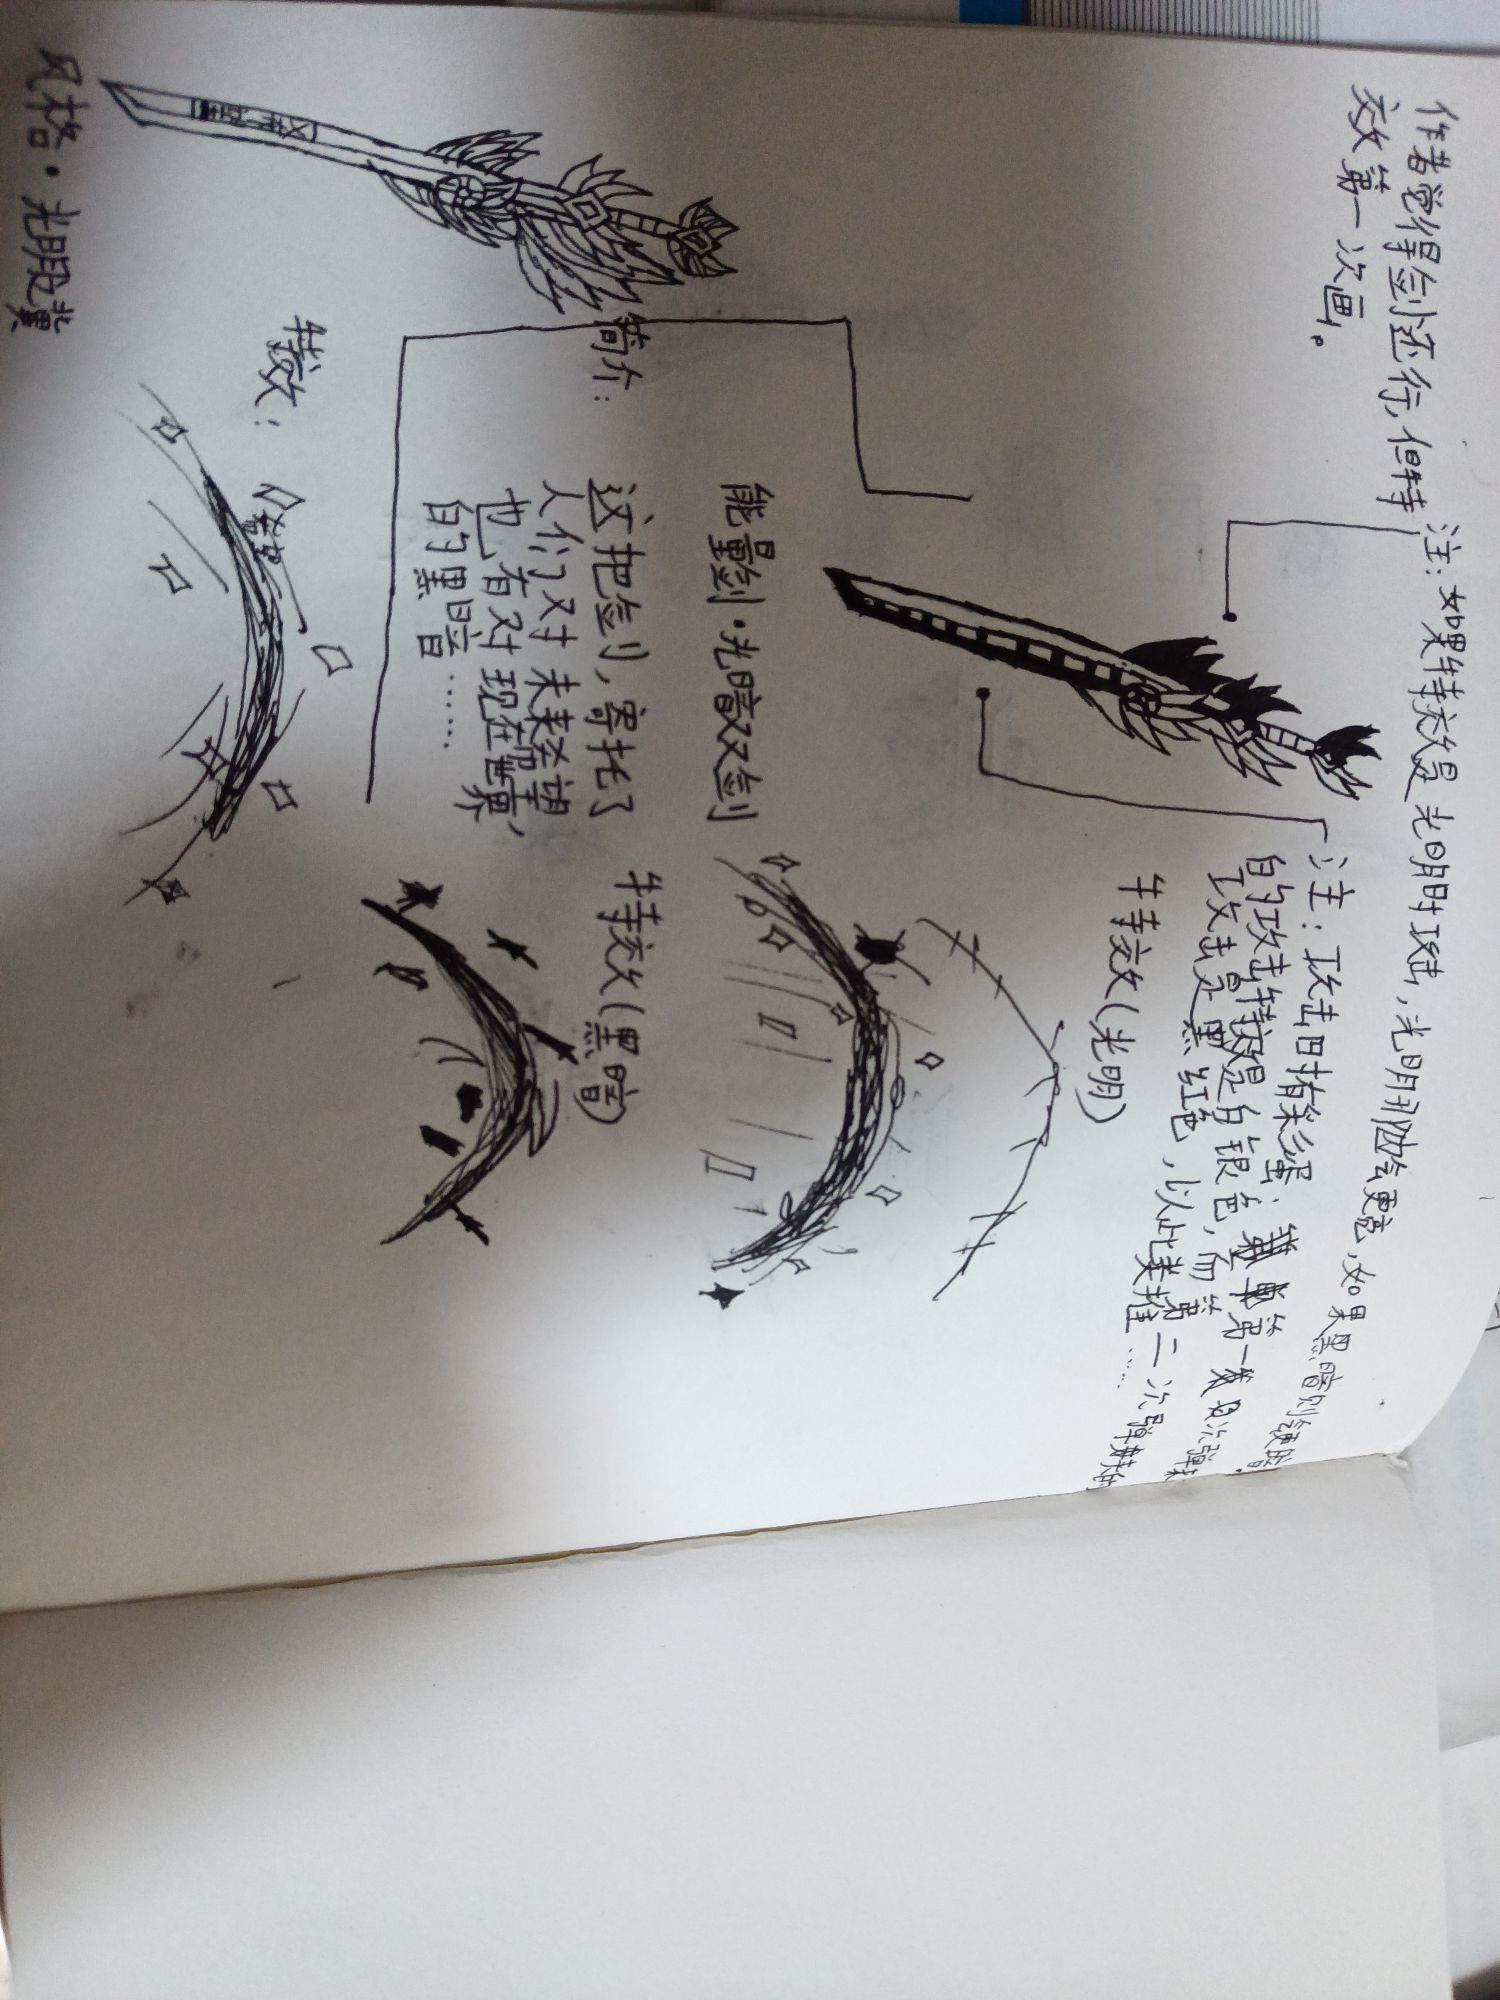 作者觉得剑还行,但特
效第一次画。
注:如果特效是光明时攻击,光明那做会更亮,如果黑暗则会更暗
注:攻击时有彩蛋:第一次弹射
的攻击特效是白银色,而第二次弹射的
攻击是黑红色,以此类推……
特效(光明)
能量剑·光暗双剑
简介:
这把剑,寄托了
人们对未来希望
也有对现在世界,
的黑暗……
特效(黑暗)
特效:
风格·光明羽翼